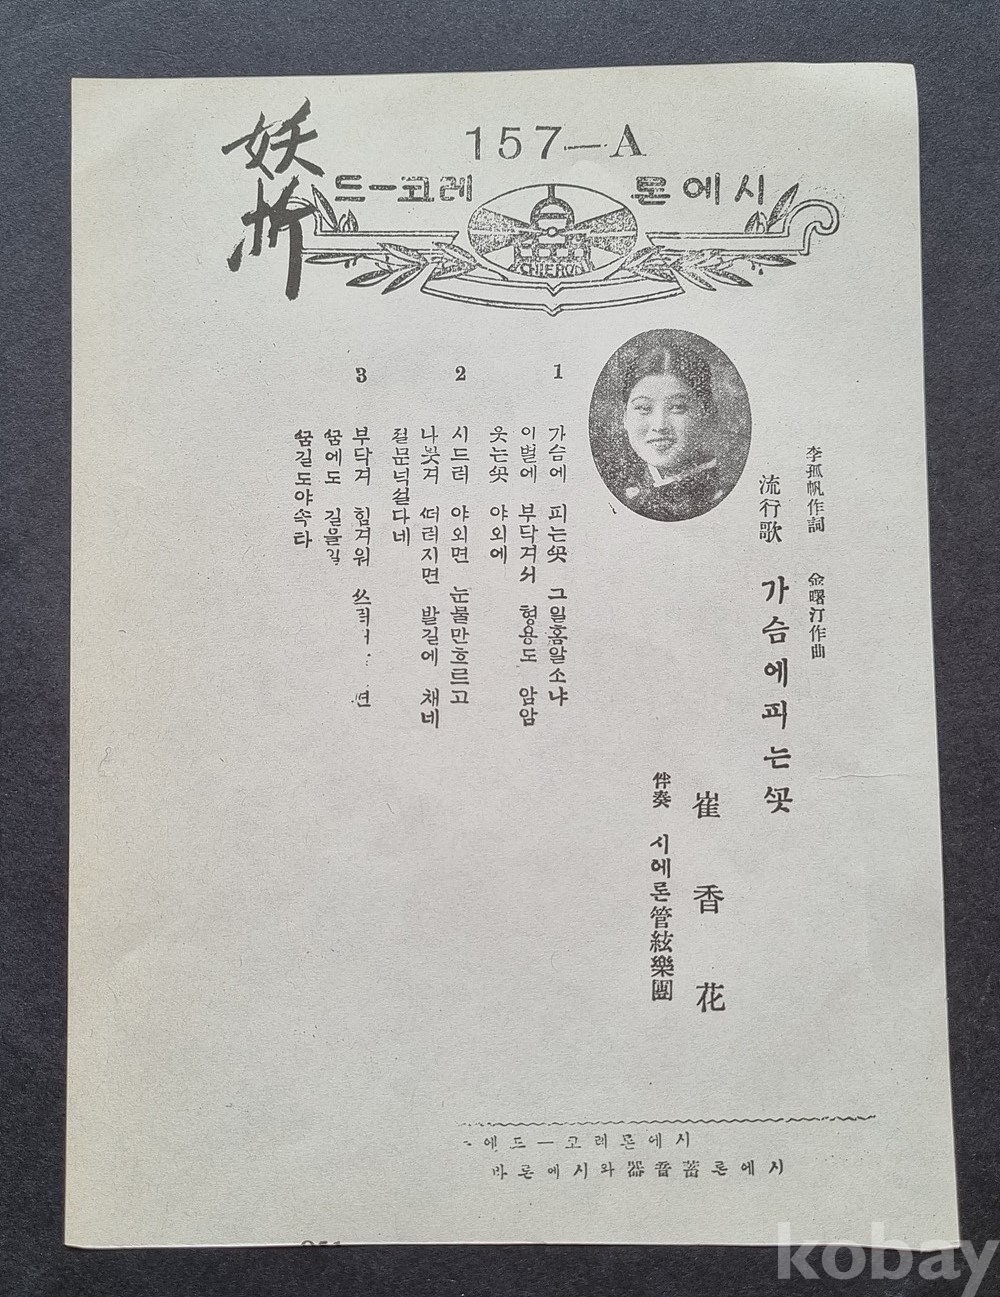 妖折
157—A
시에론 레코ー드
李孤帆作詞 金曙汀作曲
流行歌 가슴에피는ᄭᅩᆺ
崔香花
伴奏 시에론管絃樂團
1
가슴에 피는ᄭᅩᆺ 그일홈알소냐
이별에 부닥겨서 형용도 암암
웃는ᄭᅩᆺ 야외에
2
시드러 야외면 눈물만흐르고
나붓겨 ᄯᅥ러지면 발길에 채네
절문넉쉴다네
3
부닥겨 힘겨워
ᄭᅮᆷ에도 길을길
ᄭᅮᆷ길도야속타
시에론레코ー드
시에론蓄音器와시에론바
kobay